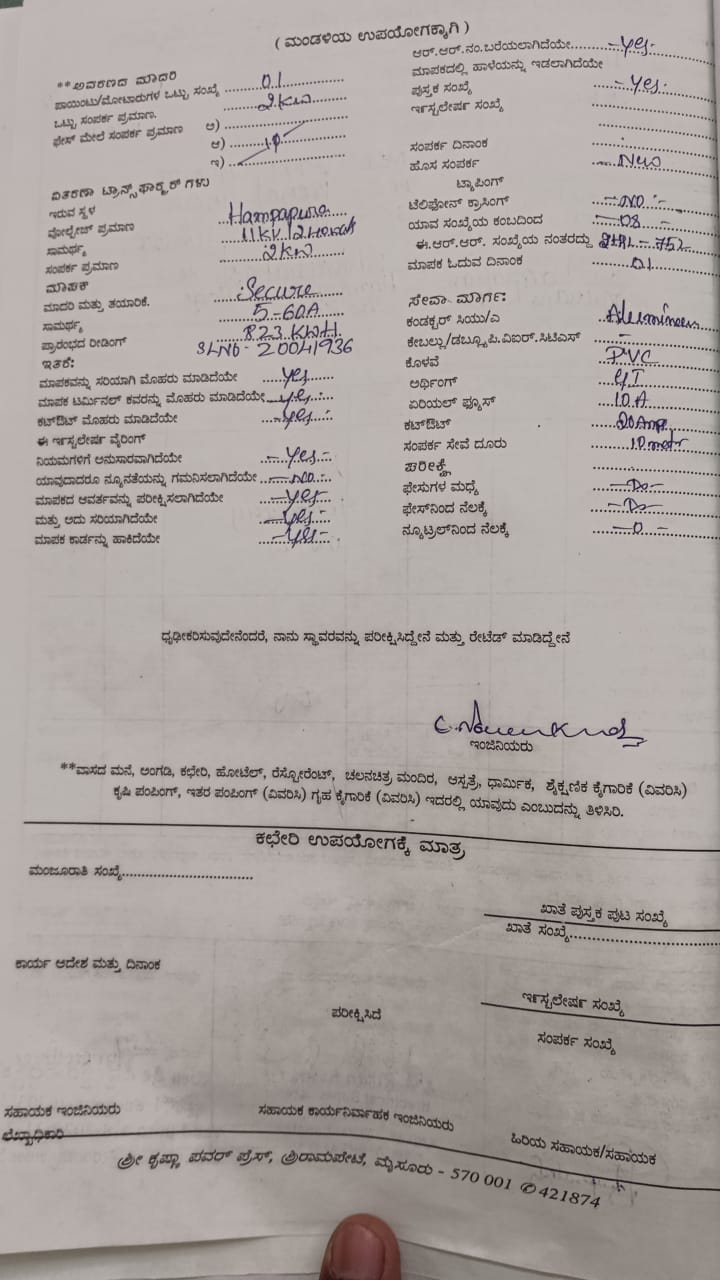 ( ಮಂಡಳಿಯ ಉಪಯೋಗಕ್ಕಾಗಿ )
**ಅವರಣದ ಮಾದರಿ
ಪಾಯಿಂಟು/ಮೋಟಾರುಗಳ ಒಟ್ಟು ಸಂಖ್ಯೆ 01
ಒಟ್ಟು ಸಂಪರ್ಕ ಪ್ರಮಾಣ. 2KW
ಫೇಸ್ ಮೇಲೆ ಸಂಪರ್ಕ ಪ್ರಮಾಣ ಅ)
ಆ)
ಇ)
ವಿತರಣಾ ಟ್ರಾನ್ಸ್‌ಫಾರ್ಮರ್ ಗಳು
ಇರುವ ಸ್ಥಳ Hampapura
ವೋಲ್ಟೇಜ್ ಪ್ರಮಾಣ 11KV
ಸಾಮರ್ಥ್ಯ 2KW
ಸಂಪರ್ಕ ಪ್ರಮಾಣ
ಮಾಪಕ
ಮಾದರಿ ಮತ್ತು ತಯಾರಿಕೆ. Secure
ಸಾಮರ್ಥ್ಯ 5-60A
ಪ್ರಾರಂಭದ ರೀಡಿಂಗ್ 823 KWH
SLNO- 20041936
ಇತರೆ:
ಮಾಪಕವನ್ನು ಸರಿಯಾಗಿ ಮೊಹರು ಮಾಡಿದೆಯೇ yes
ಮಾಪಕ ಟರ್ಮಿನಲ್ ಕವರನ್ನು ಮೊಹರು ಮಾಡಿದೆಯೇ yes
ಕಟ್‌ಔಟ್ ಮೊಹರು ಮಾಡಿದೆಯೇ -yes
ಈ ಇನ್ಸ್ಟಲೇಷನ್ ವೈರಿಂಗ್
ನಿಯಮಗಳಿಗೆ ಅನುಸಾರವಾಗಿದೆಯೇ -yes-
ಯಾವುದಾದರೂ ನ್ಯೂನತೆಯನ್ನು ಗಮನಿಸಲಾಗಿದೆಯೇ -NO-
ಮಾಪಕದ ಆವರ್ತವನ್ನು ಪರೀಕ್ಷಿಸಲಾಗಿದೆಯೇ -yes-
ಮತ್ತು ಅದು ಸರಿಯಾಗಿದೆಯೇ -yes-
ಮಾಪಕ ಕಾರ್ಡನ್ನು ಹಾಕಿದೆಯೇ -yes-
ಆರ್.ಆರ್.ನಂ.ಬರೆಯಲಾಗಿದೆಯೇ -yes-
ಮಾಪಕದಲ್ಲಿ ಹಾಳೆಯನ್ನು ಇಡಲಾಗಿದೆಯೇ
ಪುಸ್ತಕ ಸಂಖ್ಯೆ -yes-
ಇನ್ಸ್ಟಲೇಷನ್ ಸಂಖ್ಯೆ
ಸಂಪರ್ಕ ದಿನಾಂಕ
ಹೊಸ ಸಂಪರ್ಕ New
ಟ್ಯಾಪಿಂಗ್
ಟೆಲಿಫೋನ್ ಕ್ರಾಸಿಂಗ್ -NO-
ಯಾವ ಸಂಖ್ಯೆಯ ಕಂಬದಿಂದ -08-
ಈ.ಆರ್.ಆರ್. ಸಂಖ್ಯೆಯ ನಂತರದ್ದು
ಮಾಪಕ ಓದುವ ದಿನಾಂಕ 01
ಸೇವಾ ಮಾರ್ಗ:
ಕಂಡಕ್ಟರ್ ಸಿಯು/ಎ
ಕೇಬಲ್ಲು/ಡಬ್ಲ್ಯೂಪಿ.ವಿಐಆರ್.ಸಿಟಿಎಸ್ -
ಕೊಳವೆ PVC
ಅರ್ಥಿಂಗ್ GI
ಏರಿಯಲ್ ಫ್ಯೂಸ್ 10A
ಕಟ್‌ಔಟ್ 20Amp
ಸಂಪರ್ಕ ಸೇವೆ ದೂರು
ಪರೀಕ್ಷೆ
ಫೇಸುಗಳ ಮಧ್ಯೆ -Do-
ಫೇಸ್‌ನಿಂದ ನೆಲಕ್ಕೆ -Do-
ನ್ಯೂಟ್ರಲ್‌ನಿಂದ ನೆಲಕ್ಕೆ -0-
ಧೃಢೀಕರಿಸುವುದೇನೆಂದರೆ, ನಾನು ಸ್ಥಾವರವನ್ನು ಪರೀಕ್ಷಿಸಿದ್ದೇನೆ ಮತ್ತು ರೇಟೆಡ್ ಮಾಡಿದ್ದೇನೆ
ಇಂಜಿನಿಯರು
**ವಾಸದ ಮನೆ, ಅಂಗಡಿ, ಕಛೇರಿ, ಹೋಟೆಲ್, ರೆಸ್ಟೋರೆಂಟ್, ಚಲನಚಿತ್ರ ಮಂದಿರ, ಆಸ್ಪತ್ರೆ, ಧಾರ್ಮಿಕ, ಶೈಕ್ಷಣಿಕ ಕೈಗಾರಿಕೆ (ವಿವರಿಸಿ)
ಕೃಷಿ ಪಂಪಿಂಗ್, ಇತರ ಪಂಪಿಂಗ್ (ವಿವರಿಸಿ) ಗೃಹ ಕೈಗಾರಿಕೆ (ವಿವರಿಸಿ) ಇದರಲ್ಲಿ ಯಾವುದು ಎಂಬುದನ್ನು ತಿಳಿಸಿರಿ.
ಕಛೇರಿ ಉಪಯೋಗಕ್ಕೆ ಮಾತ್ರ
ಮಂಜೂರಾತಿ ಸಂಖ್ಯೆ
ಖಾತೆ ಪುಸ್ತಕ ಪುಟ ಸಂಖ್ಯೆ
ಖಾತೆ ಸಂಖ್ಯೆ
ಕಾರ್ಯ ಆದೇಶ ಮತ್ತು ದಿನಾಂಕ
ಇನ್ಸ್ಟಲೇಷನ್ ಸಂಖ್ಯೆ
ಪರೀಕ್ಷಿಸಿದೆ
ಸಂಪರ್ಕ ಸಂಖ್ಯೆ
ಸಹಾಯಕ ಇಂಜಿನಿಯರು
ಸಹಾಯಕ ಕಾರ್ಯನಿರ್ವಾಹಕ ಇಂಜಿನಿಯರು
ಹಿರಿಯ ಸಹಾಯಕ/ಸಹಾಯಕ
ಲೆಖ್ಖಾಧಿಕಾರಿ
ಶ್ರೀ ಕೃಷ್ಣಾ ಪವರ್ ಪ್ರೆಸ್, ಶ್ರೀರಾಮಪೇಟೆ, ಮೈಸೂರು - 570 001 ✆ 421874